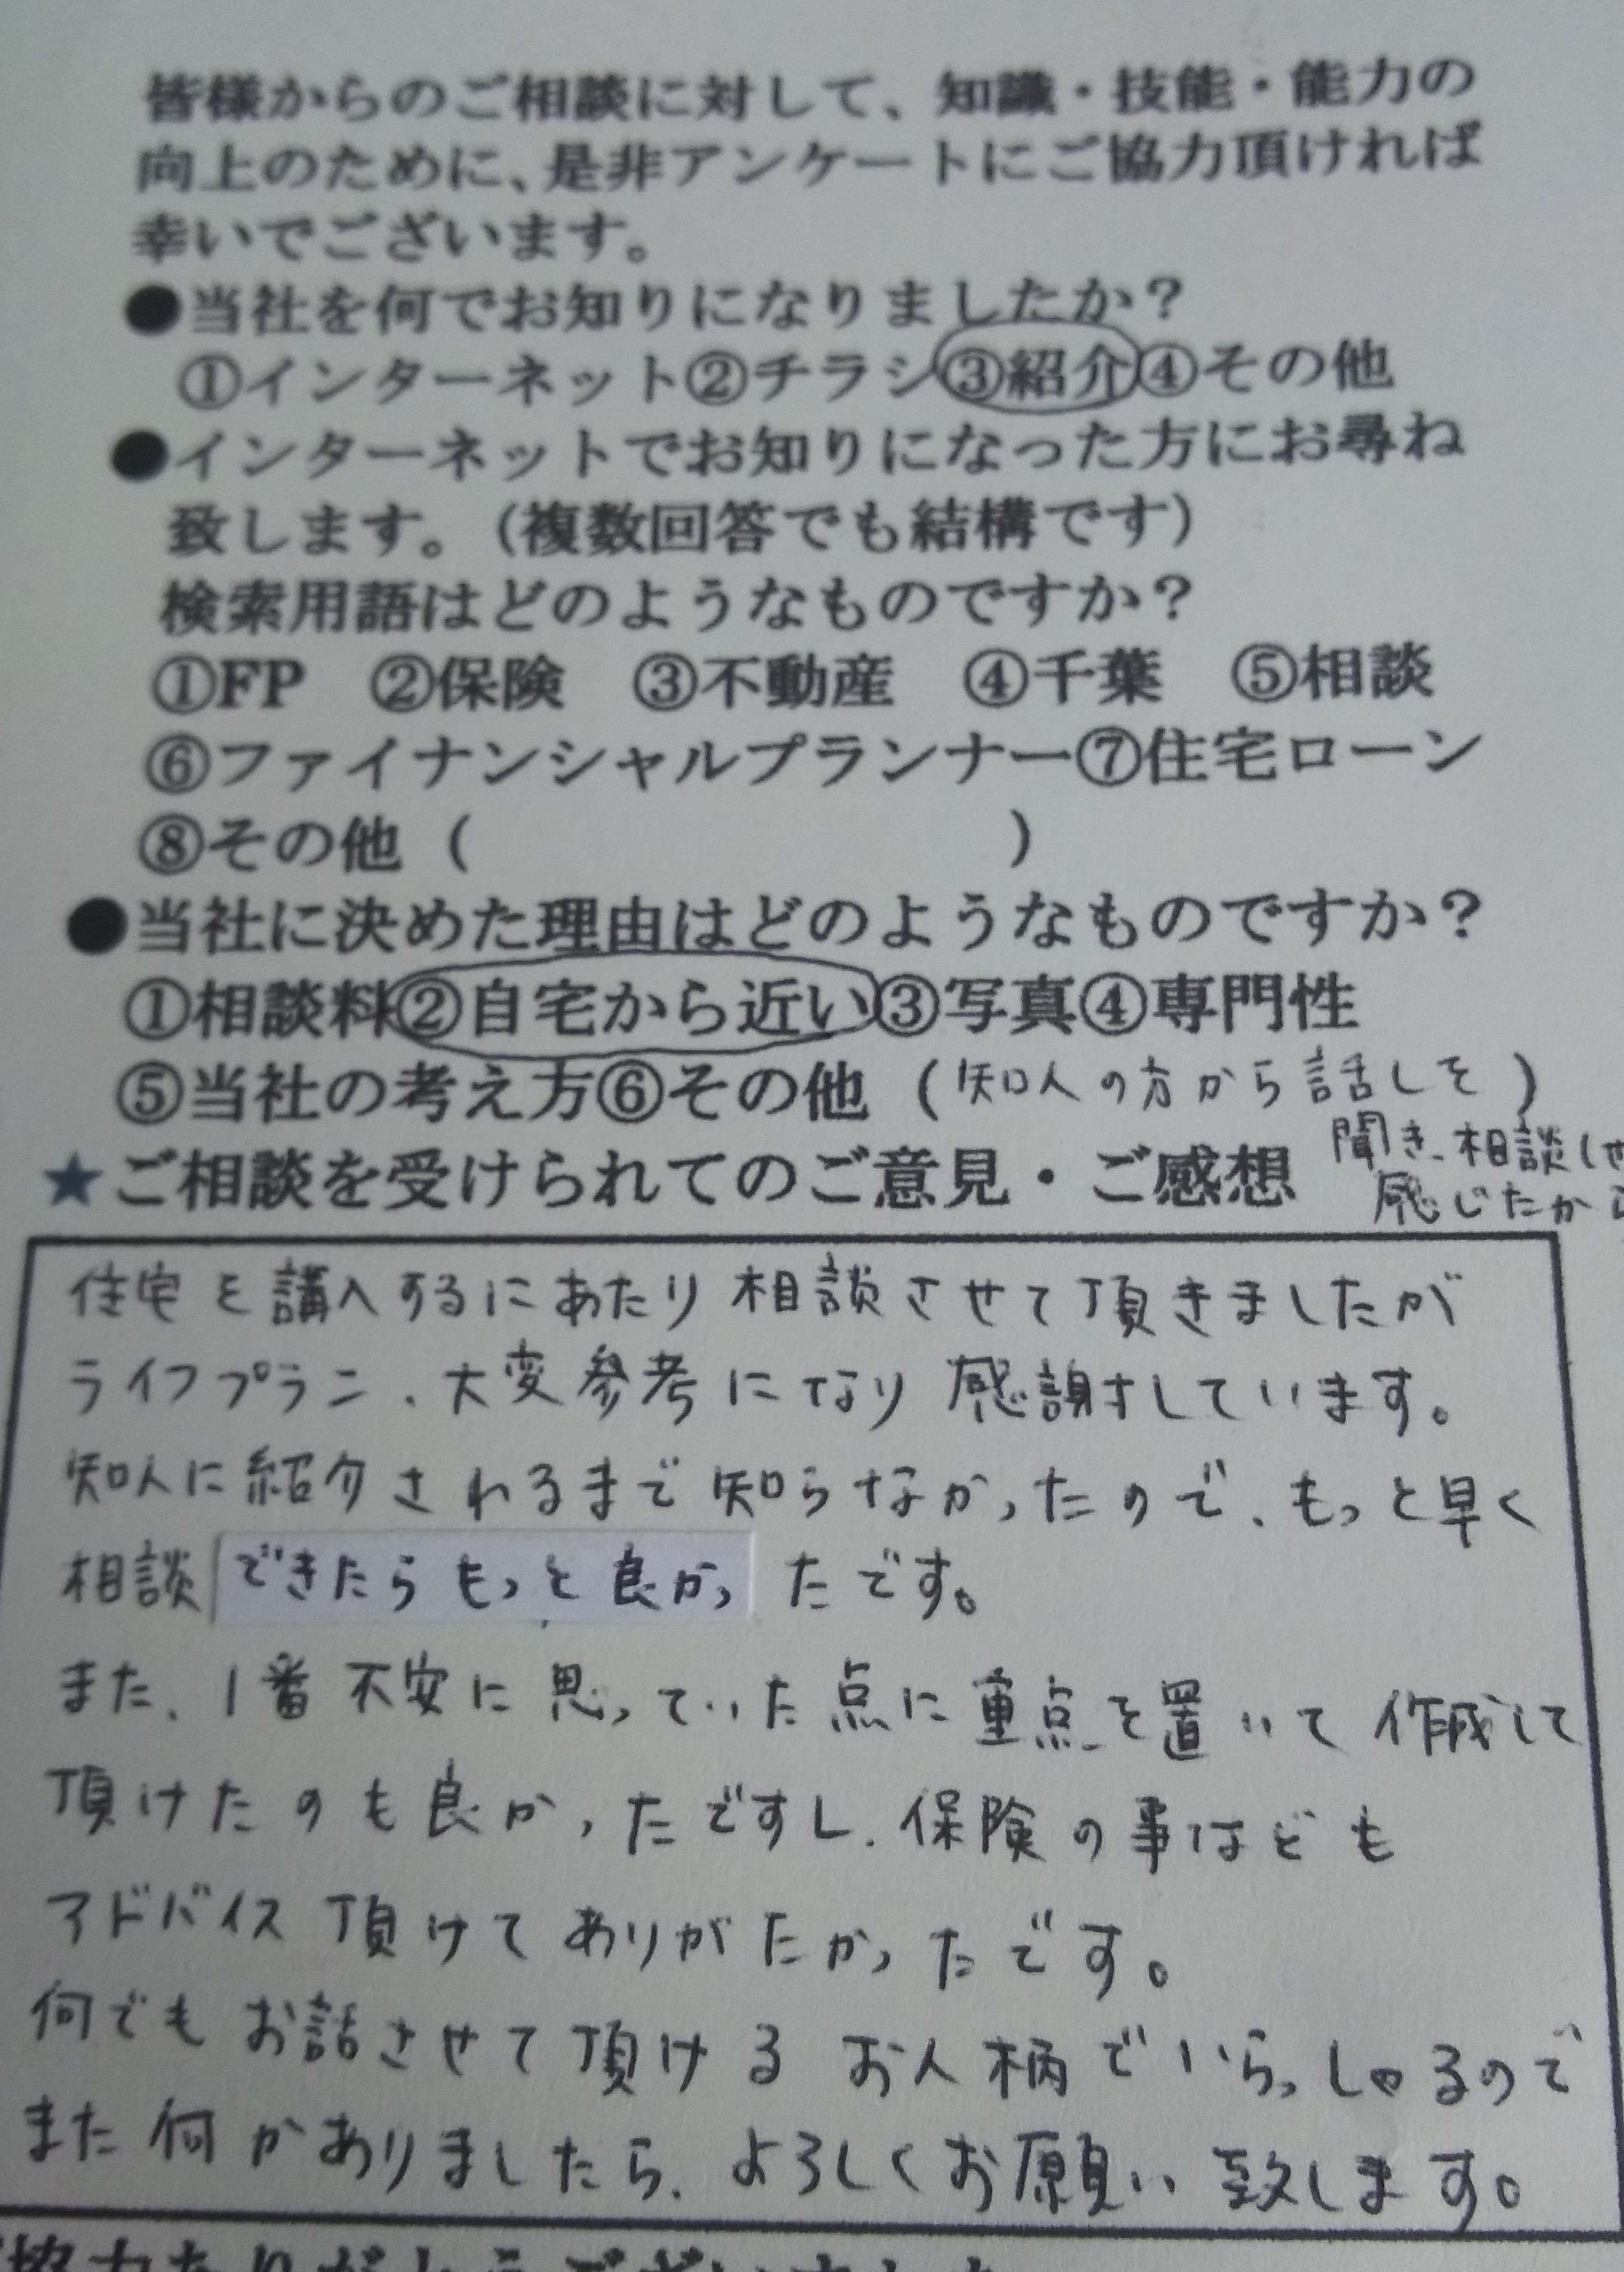 皆様からのご相談に対して、知識・技能・能力の
向上のために、是非アンケートにご協力頂ければ
幸いでございます。
●当社を何でお知りになりましたか？
①インターネット②チラシ③紹介④その他
●インターネットでお知りになった方にお尋ね
致します。（複数回答でも結構です）
検索用語はどのようなものですか？
①FP　②保険　③不動産　④千葉　⑤相談
⑥ファイナンシャルプランナー⑦住宅ローン
⑧その他（　　　　　　　　）
●当社に決めた理由はどのようなものですか？
①相談料②自宅から近い③写真④専門性
⑤当社の考え方⑥その他（知人の方から話しを）
聞き、相談しや
感じたから
★ご相談を受けられてのご意見・ご感想
住宅を講入するにあたり相談させて頂きましたが
ライフプラン、大変参考になり感謝しています。
知人に紹介されるまで知らなかったので、もっと早く
相談できたらもっと良かったです。
また、1番不安に思っていた点に重点を置いて作成して
頂けたのも良かったですし、保険の事はども
アドバイス頂けてありがたかったです。
何でもお話させて頂けるお人柄でいらっしゃるので
また何かありましたら、よろしくお願い致します。
協力ありがとうございました